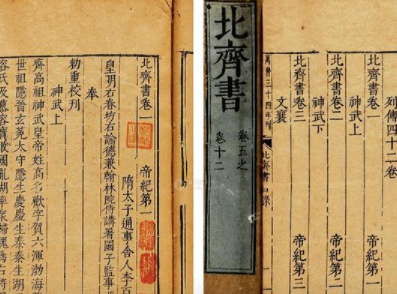 北齊書卷一　帝紀第一
隋太子通事舍人李百
皇明右春坊右諭德兼翰林院侍講署國子監事
奉
勅重校刊
神武上
齊高祖神武皇帝姓高名歡字賀六渾渤海
世祖隱晉玄菟太守隱生慶慶生泰泰生湖
北齊書
卷五之
卷十二
列傳四十二卷
北齊書卷一　帝紀第一
神武上
北齊書卷二　帝紀第二
神武下
北齊書卷三　帝紀第三
文襄